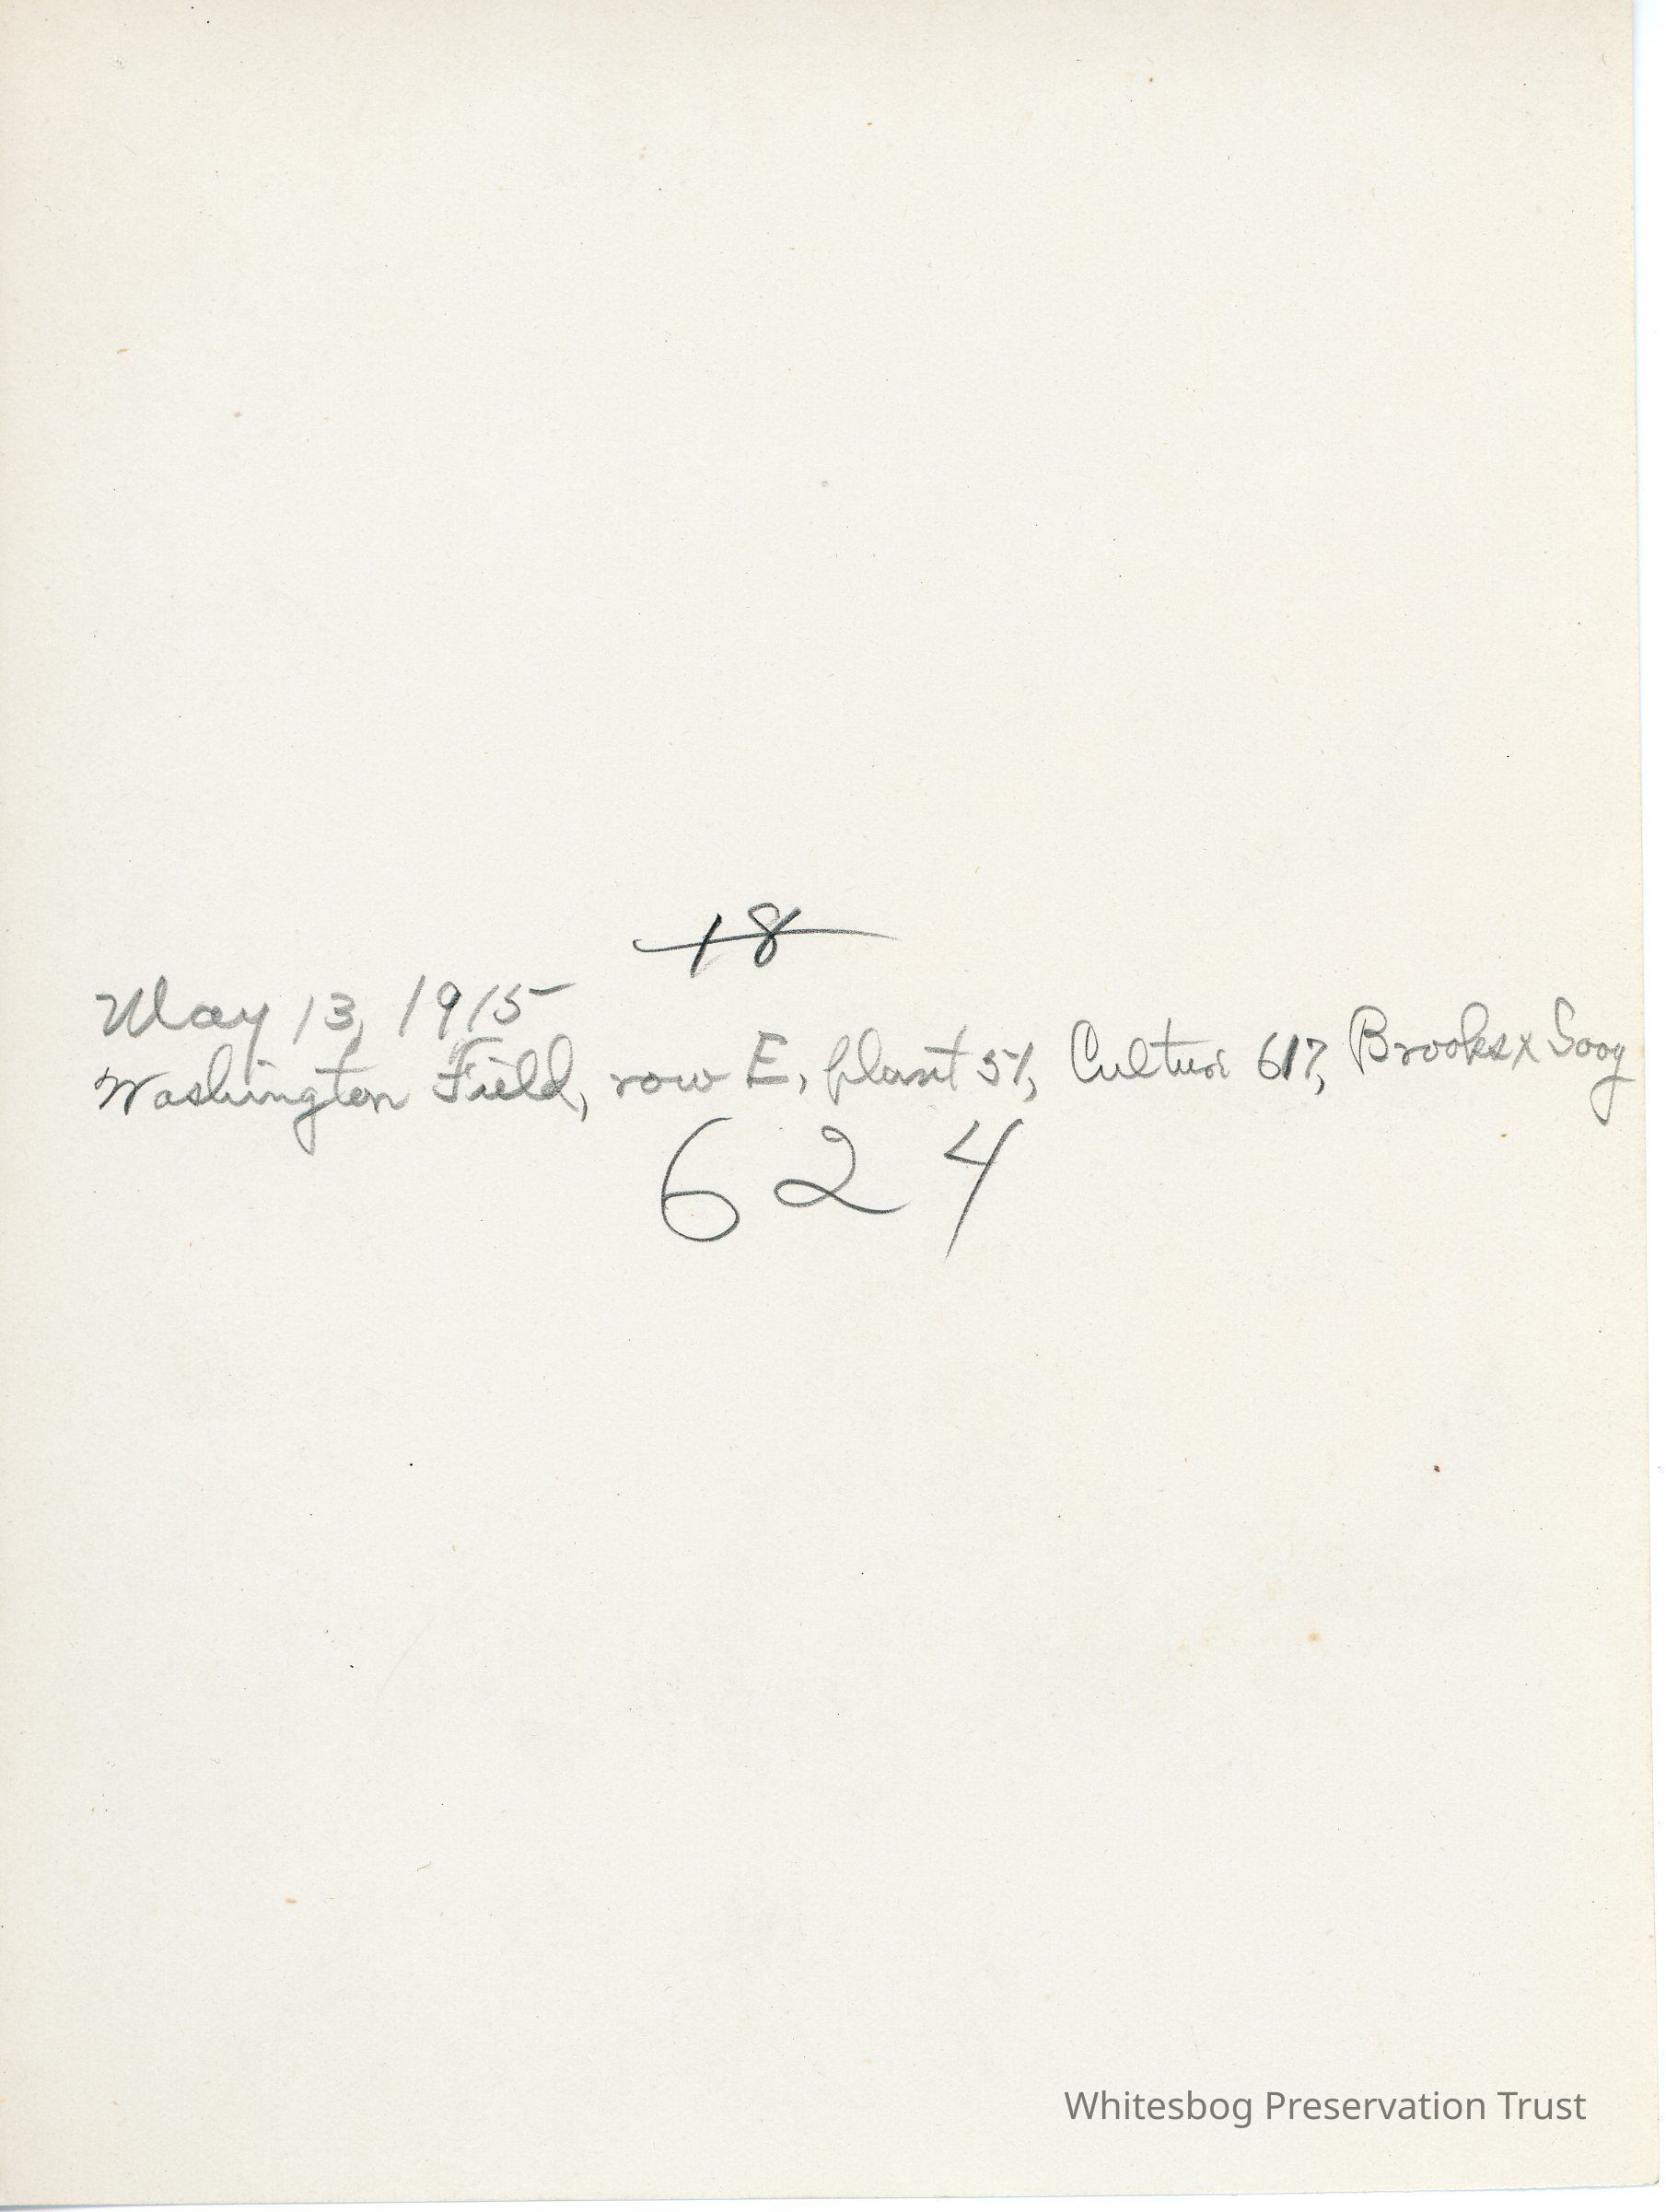 18
May 13, 1915
Washington Field, row E, plant 51, Culture 617, Brooks x Sooy
624
Whitesbog Preservation Trust